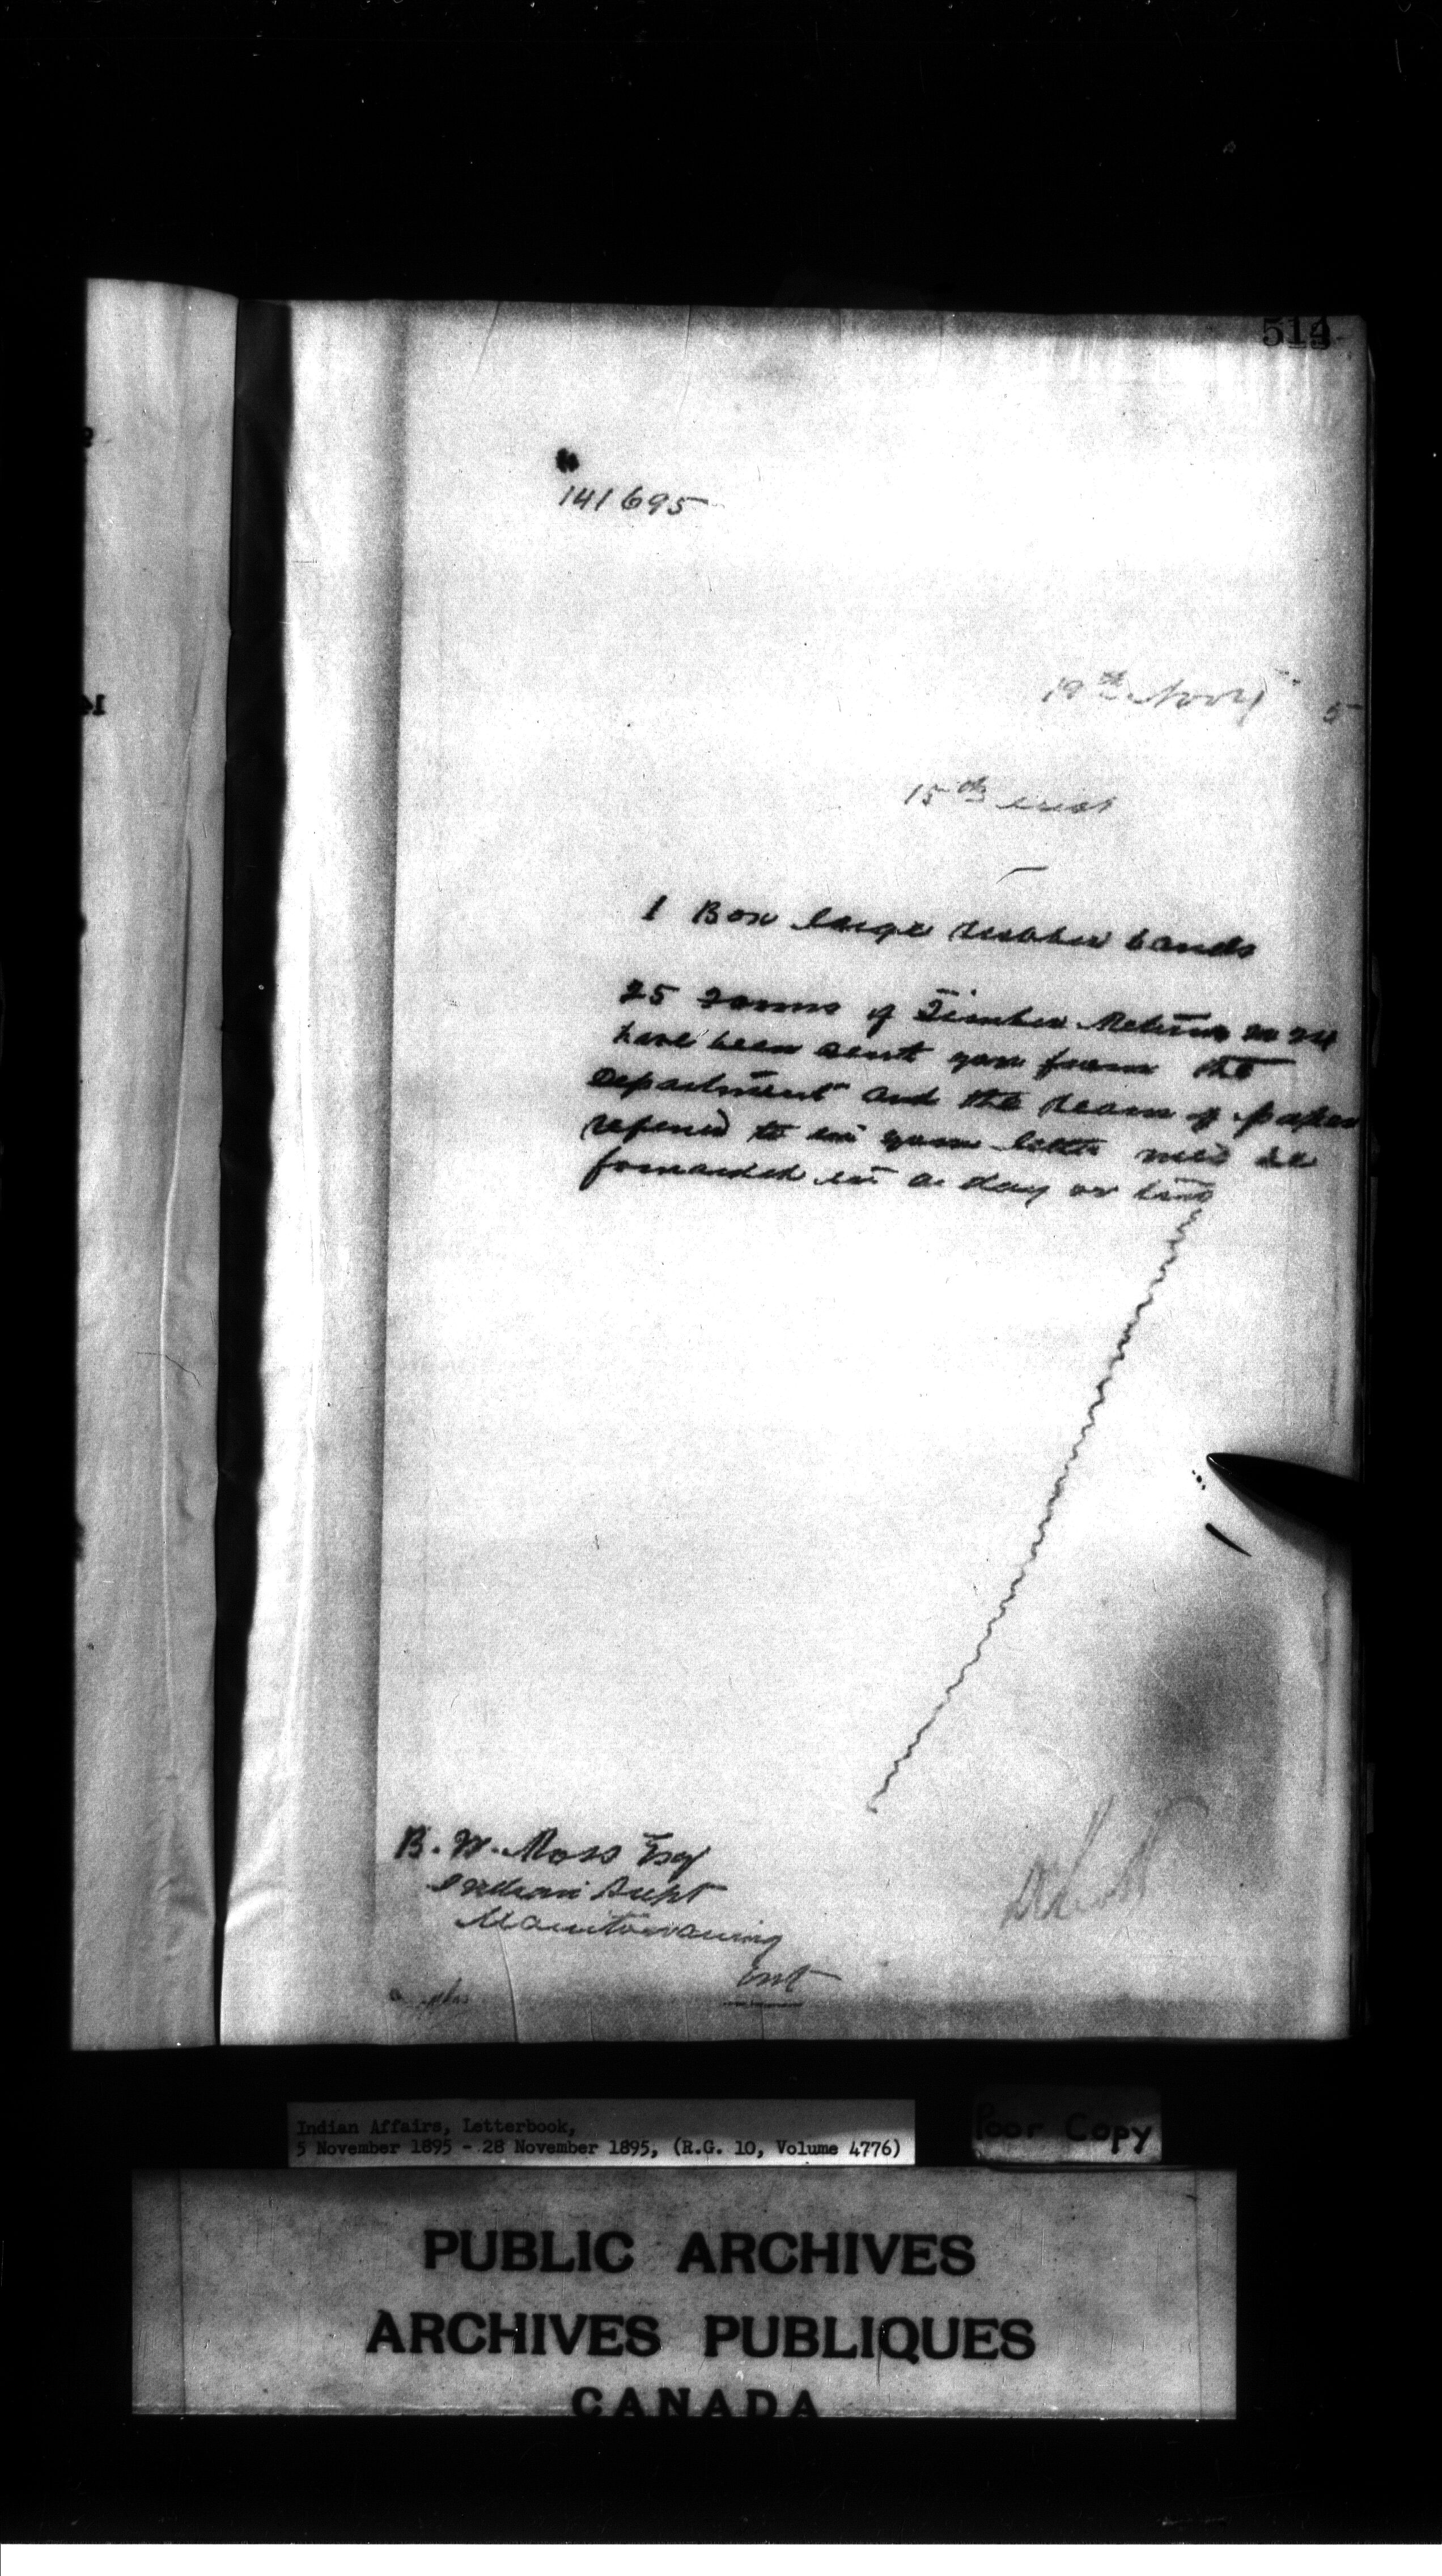 514
141695
19th Novr 5
15th inst
1 Box large rubber bands
25 Forms of Timber Returns No 24
have been sent you from the
Department and the ream of paper
referred to in your letter will be
forwarded in a day or two
B. W. Ross Esq
Indian Supt
Manitowaning
Ont
Indian Affairs, Letterbook,
5 November 1895 - 28 November 1895, (R.G. 10, Volume 4776)
Poor Copy
PUBLIC ARCHIVES
ARCHIVES PUBLIQUES
CANADA